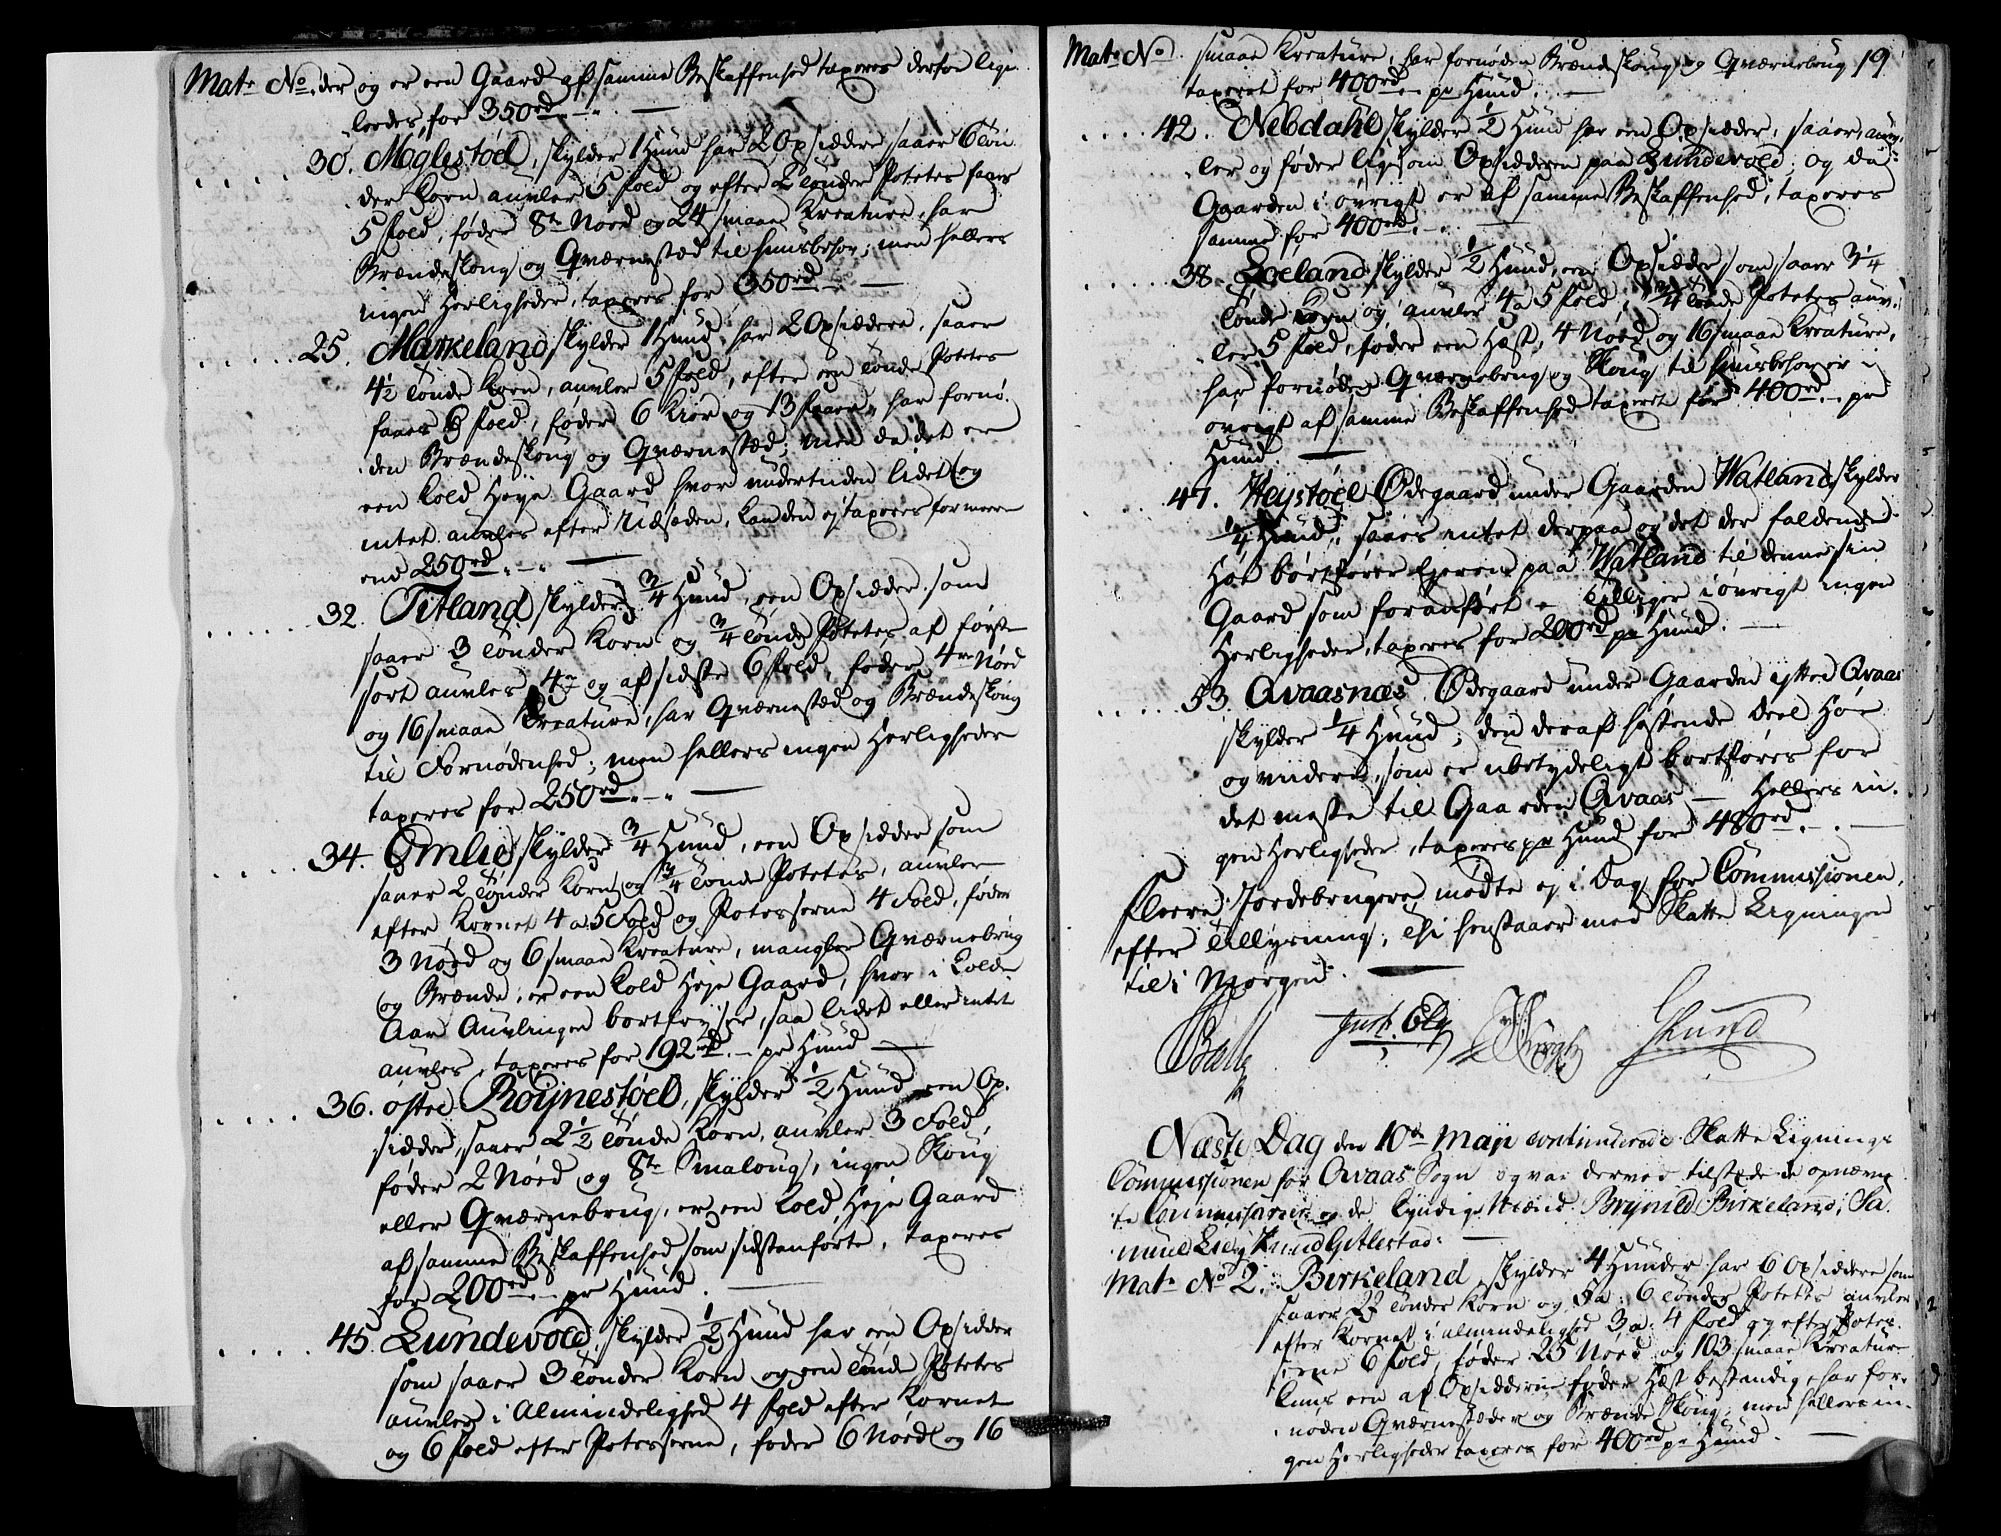 Matr No. der og er een Gaard af samme Beskaffenhed taxeres derfor lige
ledes for 350rd.-.
30. Moglestøel, skylder 1 Hund har 2 Opsiddere saaer 6 Tøn
der Korn auvler 5 fold og efter 2 Tønder Potetes faaes
5 fold, føder 8te Nøed og 24 smaae Kreature, har
Brændeskoug og Qværnestæd til Huusbehov; men hellers
ingen Herligheder, taxeres for 350rd.-.
25. Maskeland, skylder 1 Hund, har 2 Opsiddere, saaer
4½ Tønde Korn, auvler 5 fold, efter een Tønde Potetes
faaes 6 fold, føder 6 Kiør og 13 faaer, har fornø-
den Brændeskoug og Qværnestæd; men da det er
een kold Høye Gaard hvor undertiden lidet og
intet auvles efter Udsæden, kan den ej taxeres for meere
end 250rd.-.
32. Titland skylder ¾ Hund, een Opsidder som
saaer 3 Tønder Korn og ¾ Tønde Potetes af første
sort auvles 4re og af sidste 6 fold, føder 4re Nøed
og 16 smaae Kreature, har Qværnestæd og Brændeskoug
til Fornødenhed; men hellers ingen Herligheder
taxeres for 250rd.-.
34. Omlie skylder ¾ Hund, een Opsidder som
saaer 2 Tønder Korn og ¾ Tønde Potetes, auvler
efter Kornet 4 a 5 Fold og Potesserne 4 Fold, føder
3 Nøed og 6 smaae Kreature, mangler Qværnebrug
og Brænde, er een kold Høje Gaard, hvor i kolde
Aar Auvlingen bortfryser, saa lidet eller intet
auvles, taxeres for 192rd.- pr Hund
36. østre Røÿnestøel, skÿlder ½ Hund een Op-
sidder, saaer 2½ Tønde Korn, auvler 3 Fold,
føder 2 Nøed og 8te Smaloug, ingen Skoug
eller Qværnebrug, er een kold Høje Gaard
af samme Beskaffenhed som sidstanførte, taxeres
for 200rd.- pr Hund.
45. Lundevold, skylder ½ Hund har een Opsidder
som saaer 3 Tønder Korn og een Tønde Potetes
auvler i Almindelighed 4 fold efter Kornet
og 6 fold efter Potesserne, føder 6 Nøed og 16
Matr No. smaae Kreature, har fornøden Brændeskoug og Qværnebrug 19
taxeret for 400rd.- pr Hund.
42. Nebdahl skylder ½ Hund har een Opsidder, saaer, auv-
ler og føder ligesom Opsidderen paa Lundevold, og da
Gaarden i øvrigt er af samme Beskaffenhed, taxeres
samme for 400rd.-.
38. Loeland, skylder ½ Hund, een Opsidder, som saaer 3¼
Tønde Korn og auvler 4 a 5 fold, ¾ Tønde Potetes auv-
ler 5 fold, føder een Hæst, 4 Nøed og 16 smaae Kreature,
har fornøden Qværnebrug og Skoug til Huusbehov er i
øvrigt af samme Beskaffenhed taxeret for 400rd.- pr
Hund.
47. Heystøel Ødegaard under Gaarden Watland, skylder
¼ Hund, saaes intet derpaa og det der faldende
Høe bortfører Ejeren paa Watland til denne sin
Gaard som foranført - Tilliger i øvrigt ingen
Herligheder, taxeres for 200rd pr Hund.
53. Qvaasnæs, Ødegaard under Gaarden yttre Qvaas
skylder ¼ Hund; den deraf høstende deel Høe
og viidere, som er ubetydeligt bortføres for
det meste til Gaarden Qvaas - Hellers in-
gen Herligheder, taxeres pr Hund for 480rd.-.
Fleere Jordebrugere mødte ej i Dag for Commissionen,
efter Tillysning, Thi henstaaer med Skatte Ligningen
til i Morgen.
Balle Just. Ely Lund
Næste Dag den 10de Maij continuerede Skatte Lignings
Commissionen for Qvaas Sogn og var derved tilstede de opnævn
te Commissairer og de kyndige Mænd Brynild Birkeland, Sa
muel Lie og Knud Gitlestad.
Matr No. 2. Birkeland, skylder 4 Hunder har 6 Opsiddere som
saaer 22 Tønder Korn og 6 Tønder Potetes auvler
efter Kornet i almindelighed 3 a 4 fold og efter Potes-
serne 6 fold, føder 25 Nøed og 103 smaae Kreature
kuns een af Opsidderne føder Hæst bestandig, har for-
nøden Qværnestæder og Brænde Skoug, men hellers in-
gen Herligheder taxeres for 400rd pr Hund.